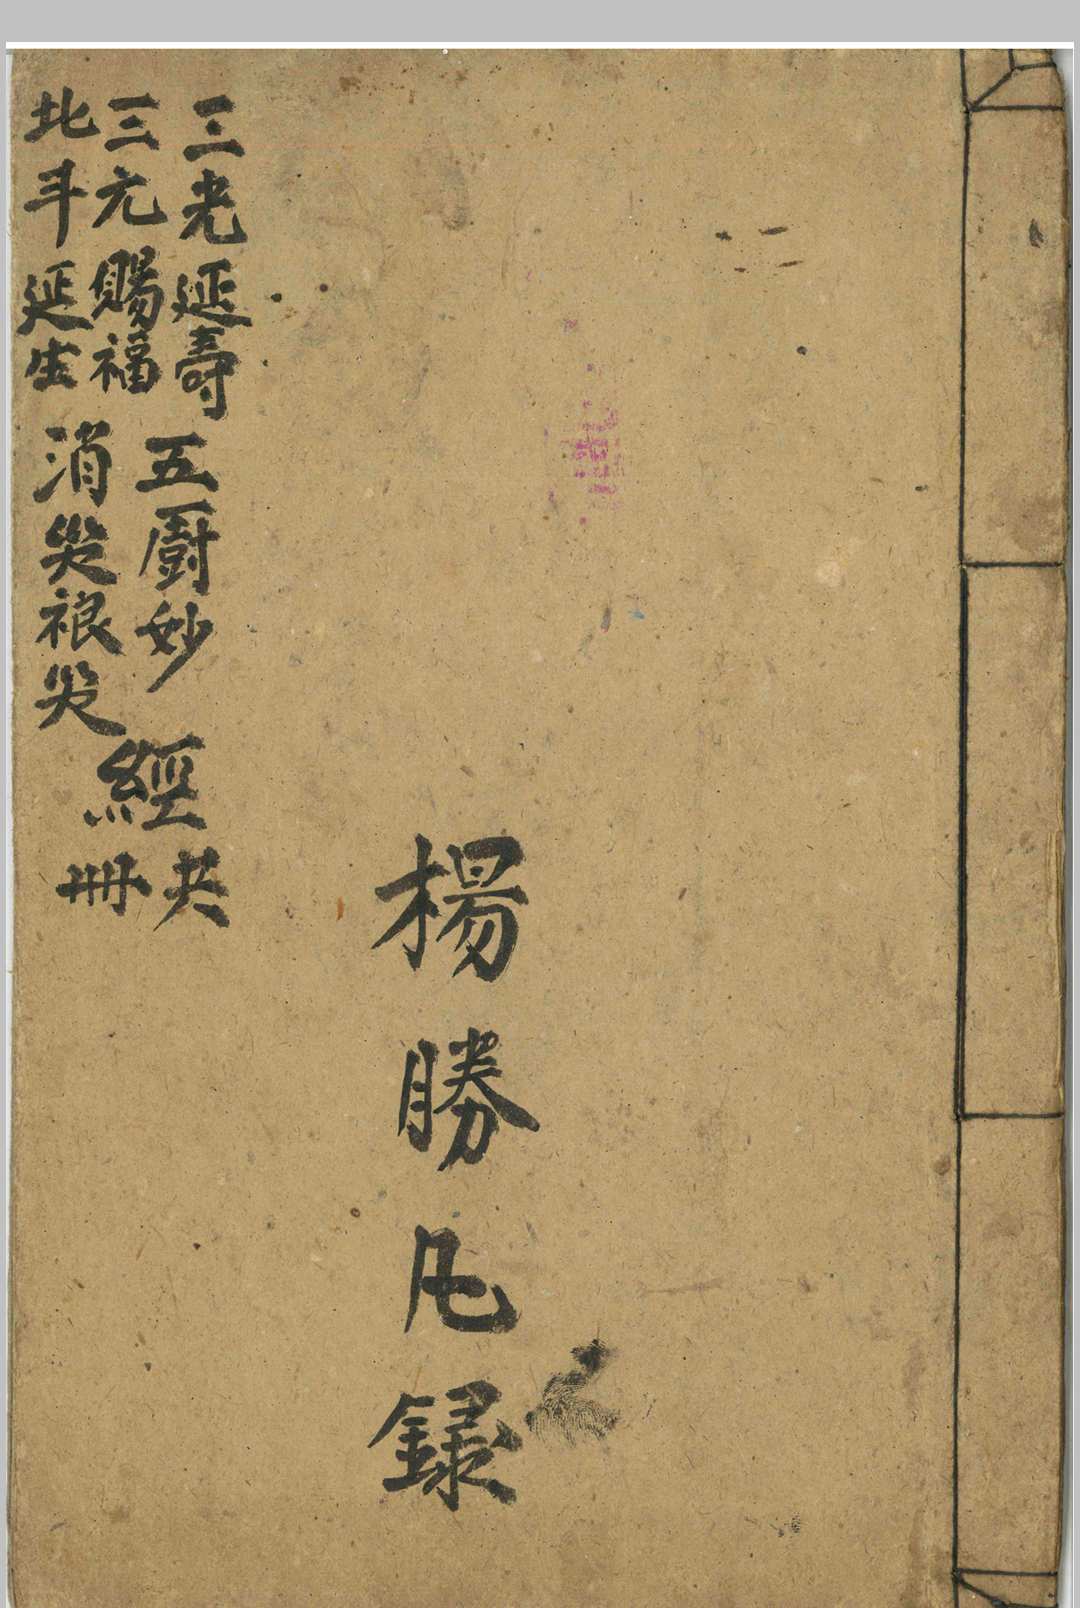 楊勝録
三光延壽
三元賜福
北斗延生
五厨妙
消災禳災
經
共
冊